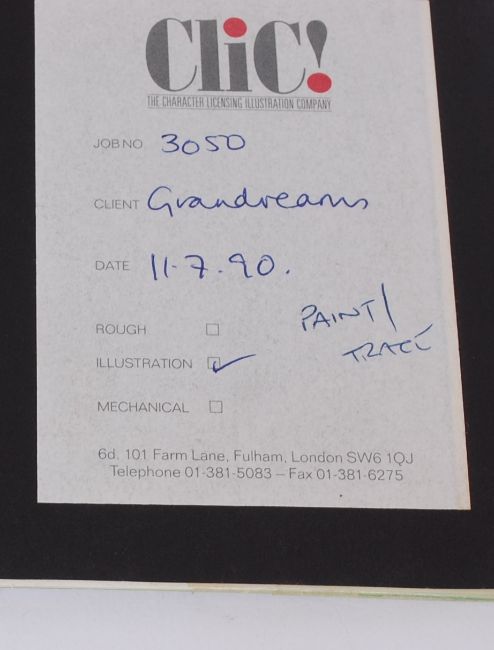 CliC!
THE CHARACTER LICENSING ILLUSTRATION COMPANY
JOB NO 3050
CLIENT Grandreams
DATE 11.7.90.
ROUGH
PAINT/
ILLUSTRATION ✓
TRACE
MECHANICAL
6d, 101 Farm Lane, Fulham, London SW6 1QJ
Telephone 01-381-5083 – Fax 01-381-6275